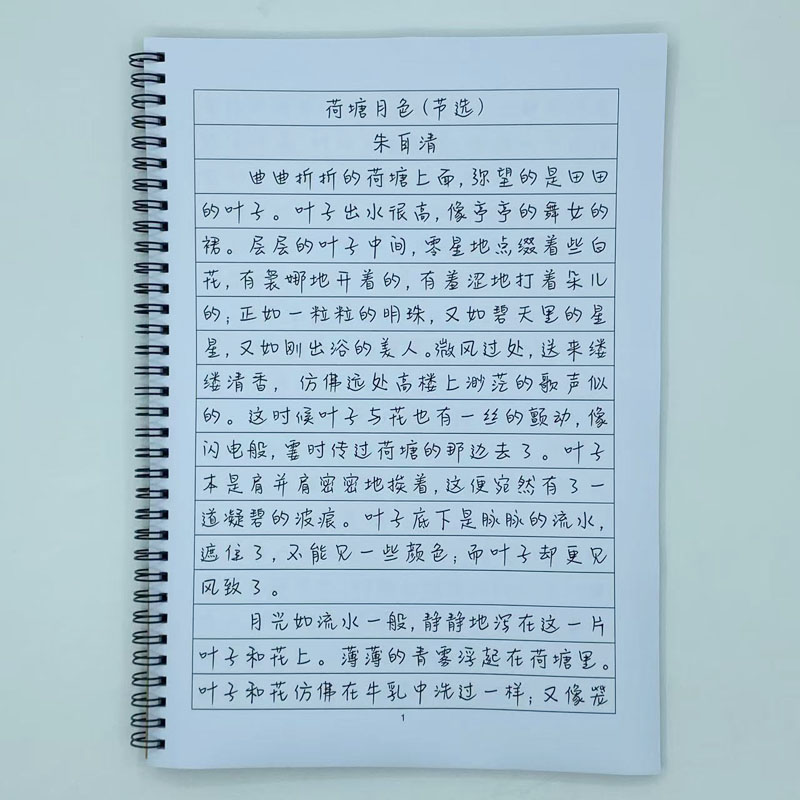 荷塘月色(节选)
朱自清
曲曲折折的荷塘上面,弥望的是田田
的叶子。叶子出水很高,像亭亭的舞女的
裙。层层的叶子中间,零星地点缀着些白
花,有袅娜地开着的,有羞涩地打着朵儿
的;正如一粒粒的明珠,又如碧天里的星
星,又如刚出浴的美人。微风过处,送来缕
缕清香,仿佛远处高楼上渺茫的歌声似
的。这时候叶子与花也有一丝的颤动,像
闪电般,霎时传过荷塘的那边去了。叶子
本是肩并肩密密地挨着,这便宛然有了一
道凝碧的波痕。叶子底下是脉脉的流水,
遮住了,不能见一些颜色;而叶子却更见
风致了。
月光如流水一般,静静地泻在这一片
叶子和花上。薄薄的青雾浮起在荷塘里。
叶子和花仿佛在牛乳中洗过一样;又像笼
1